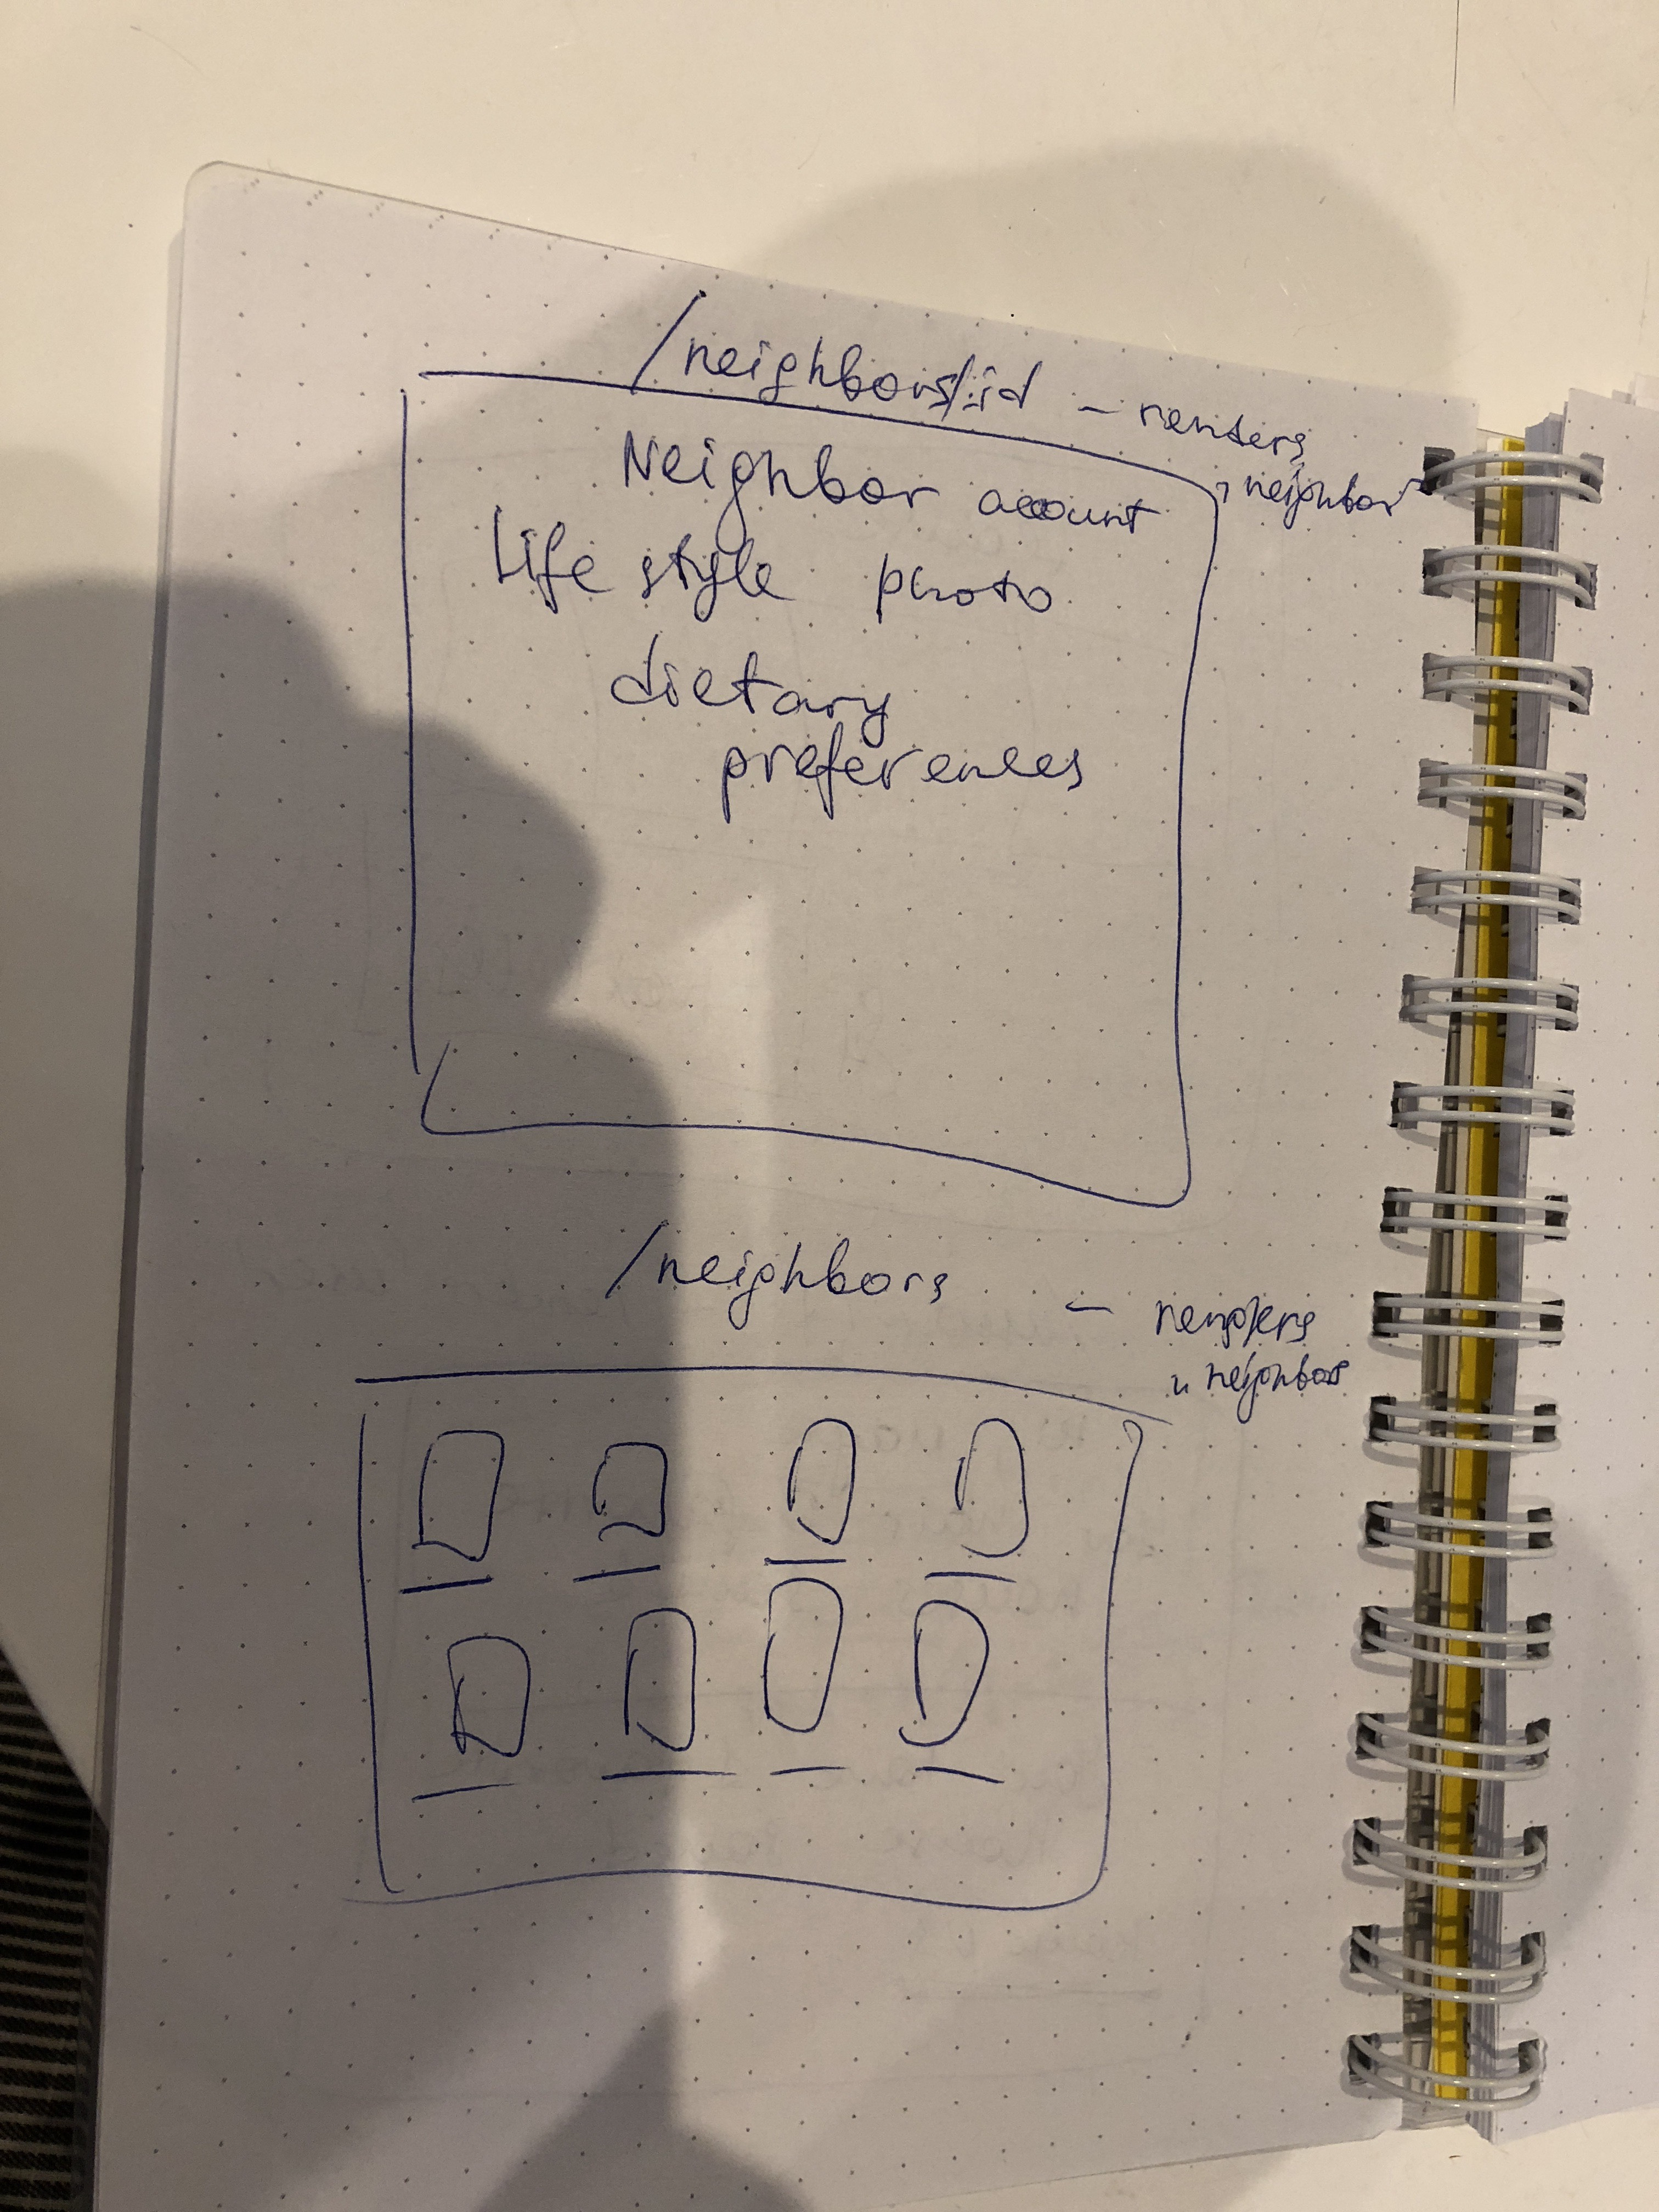 /neighbors/:id - renders
1 neighbor
Neighbor account
Life style photo
dietary
preferences
/neighbors - renders
neighbors